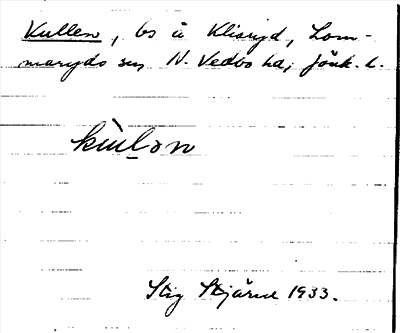 Kullen, ls å Kliaryd, Lom-
maryds sn, N. Vedbo hd, Jönk. l.
kùlən
Stig Stjärne 1933.